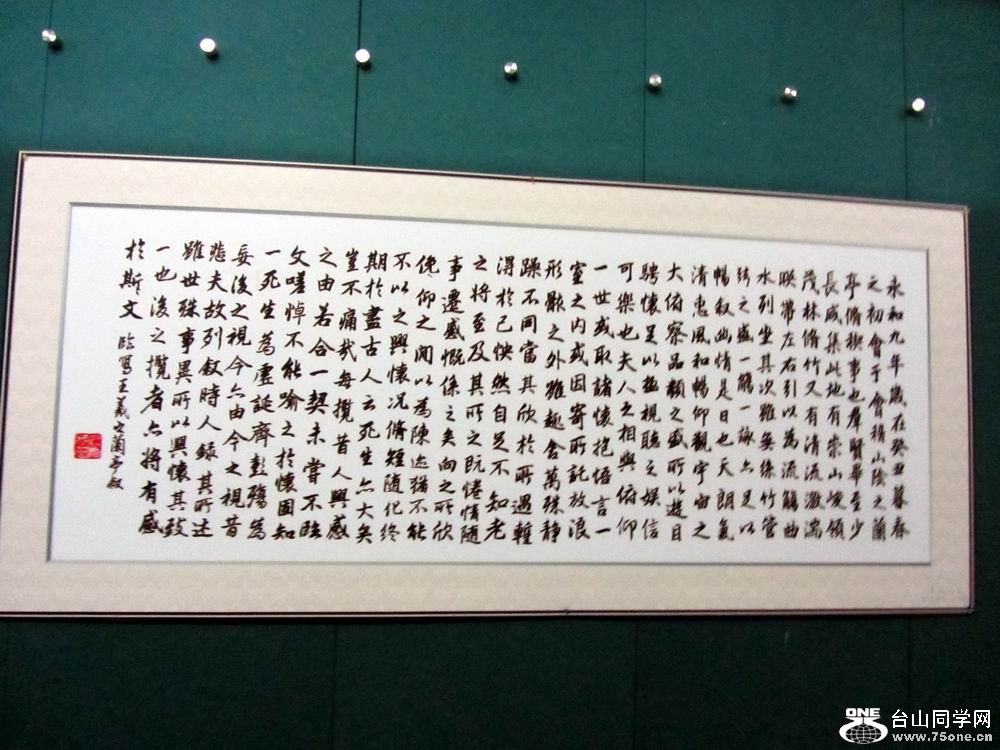 永和九年歲在癸丑暮春
之初會于會稽山陰之蘭
亭脩稧事也羣賢畢至少
長咸集此地有崇山峻領
茂林脩竹又有清流激湍
暎帶左右引以為流觴曲
水列坐其次雖無絲竹管
弦之盛一觴一詠亦足以
暢叙幽情是日也天朗氣
清惠風和暢仰觀宇宙之
大俯察品類之盛所以遊目
騁懷足以極視聽之娛信
可樂也夫人之相與俯仰
一世或取諸懷抱悟言一
室之內或因寄所託放浪
形骸之外雖趣舍萬殊靜
躁不同當其欣於所遇暫
得於己怏然自足不知老
之將至及其所之既惓情隨
事遷感慨係之矣向之所欣
俛仰之間以為陳迹猶不能
不以之興懷況脩短隨化終
期於盡古人云死生亦大矣
豈不痛哉每攬昔人興感
之由若合一契未嘗不臨
文嗟悼不能喻之於懷固知
一死生為虛誕齊彭殤為
妄後之視今亦由今之視昔
悲夫故列叙時人錄其所述
雖世殊事異所以興懷其致
一也後之攬者亦將有感
於斯文 臨寫王羲之蘭亭叙
ONE 台山同学网
www.75one.cn